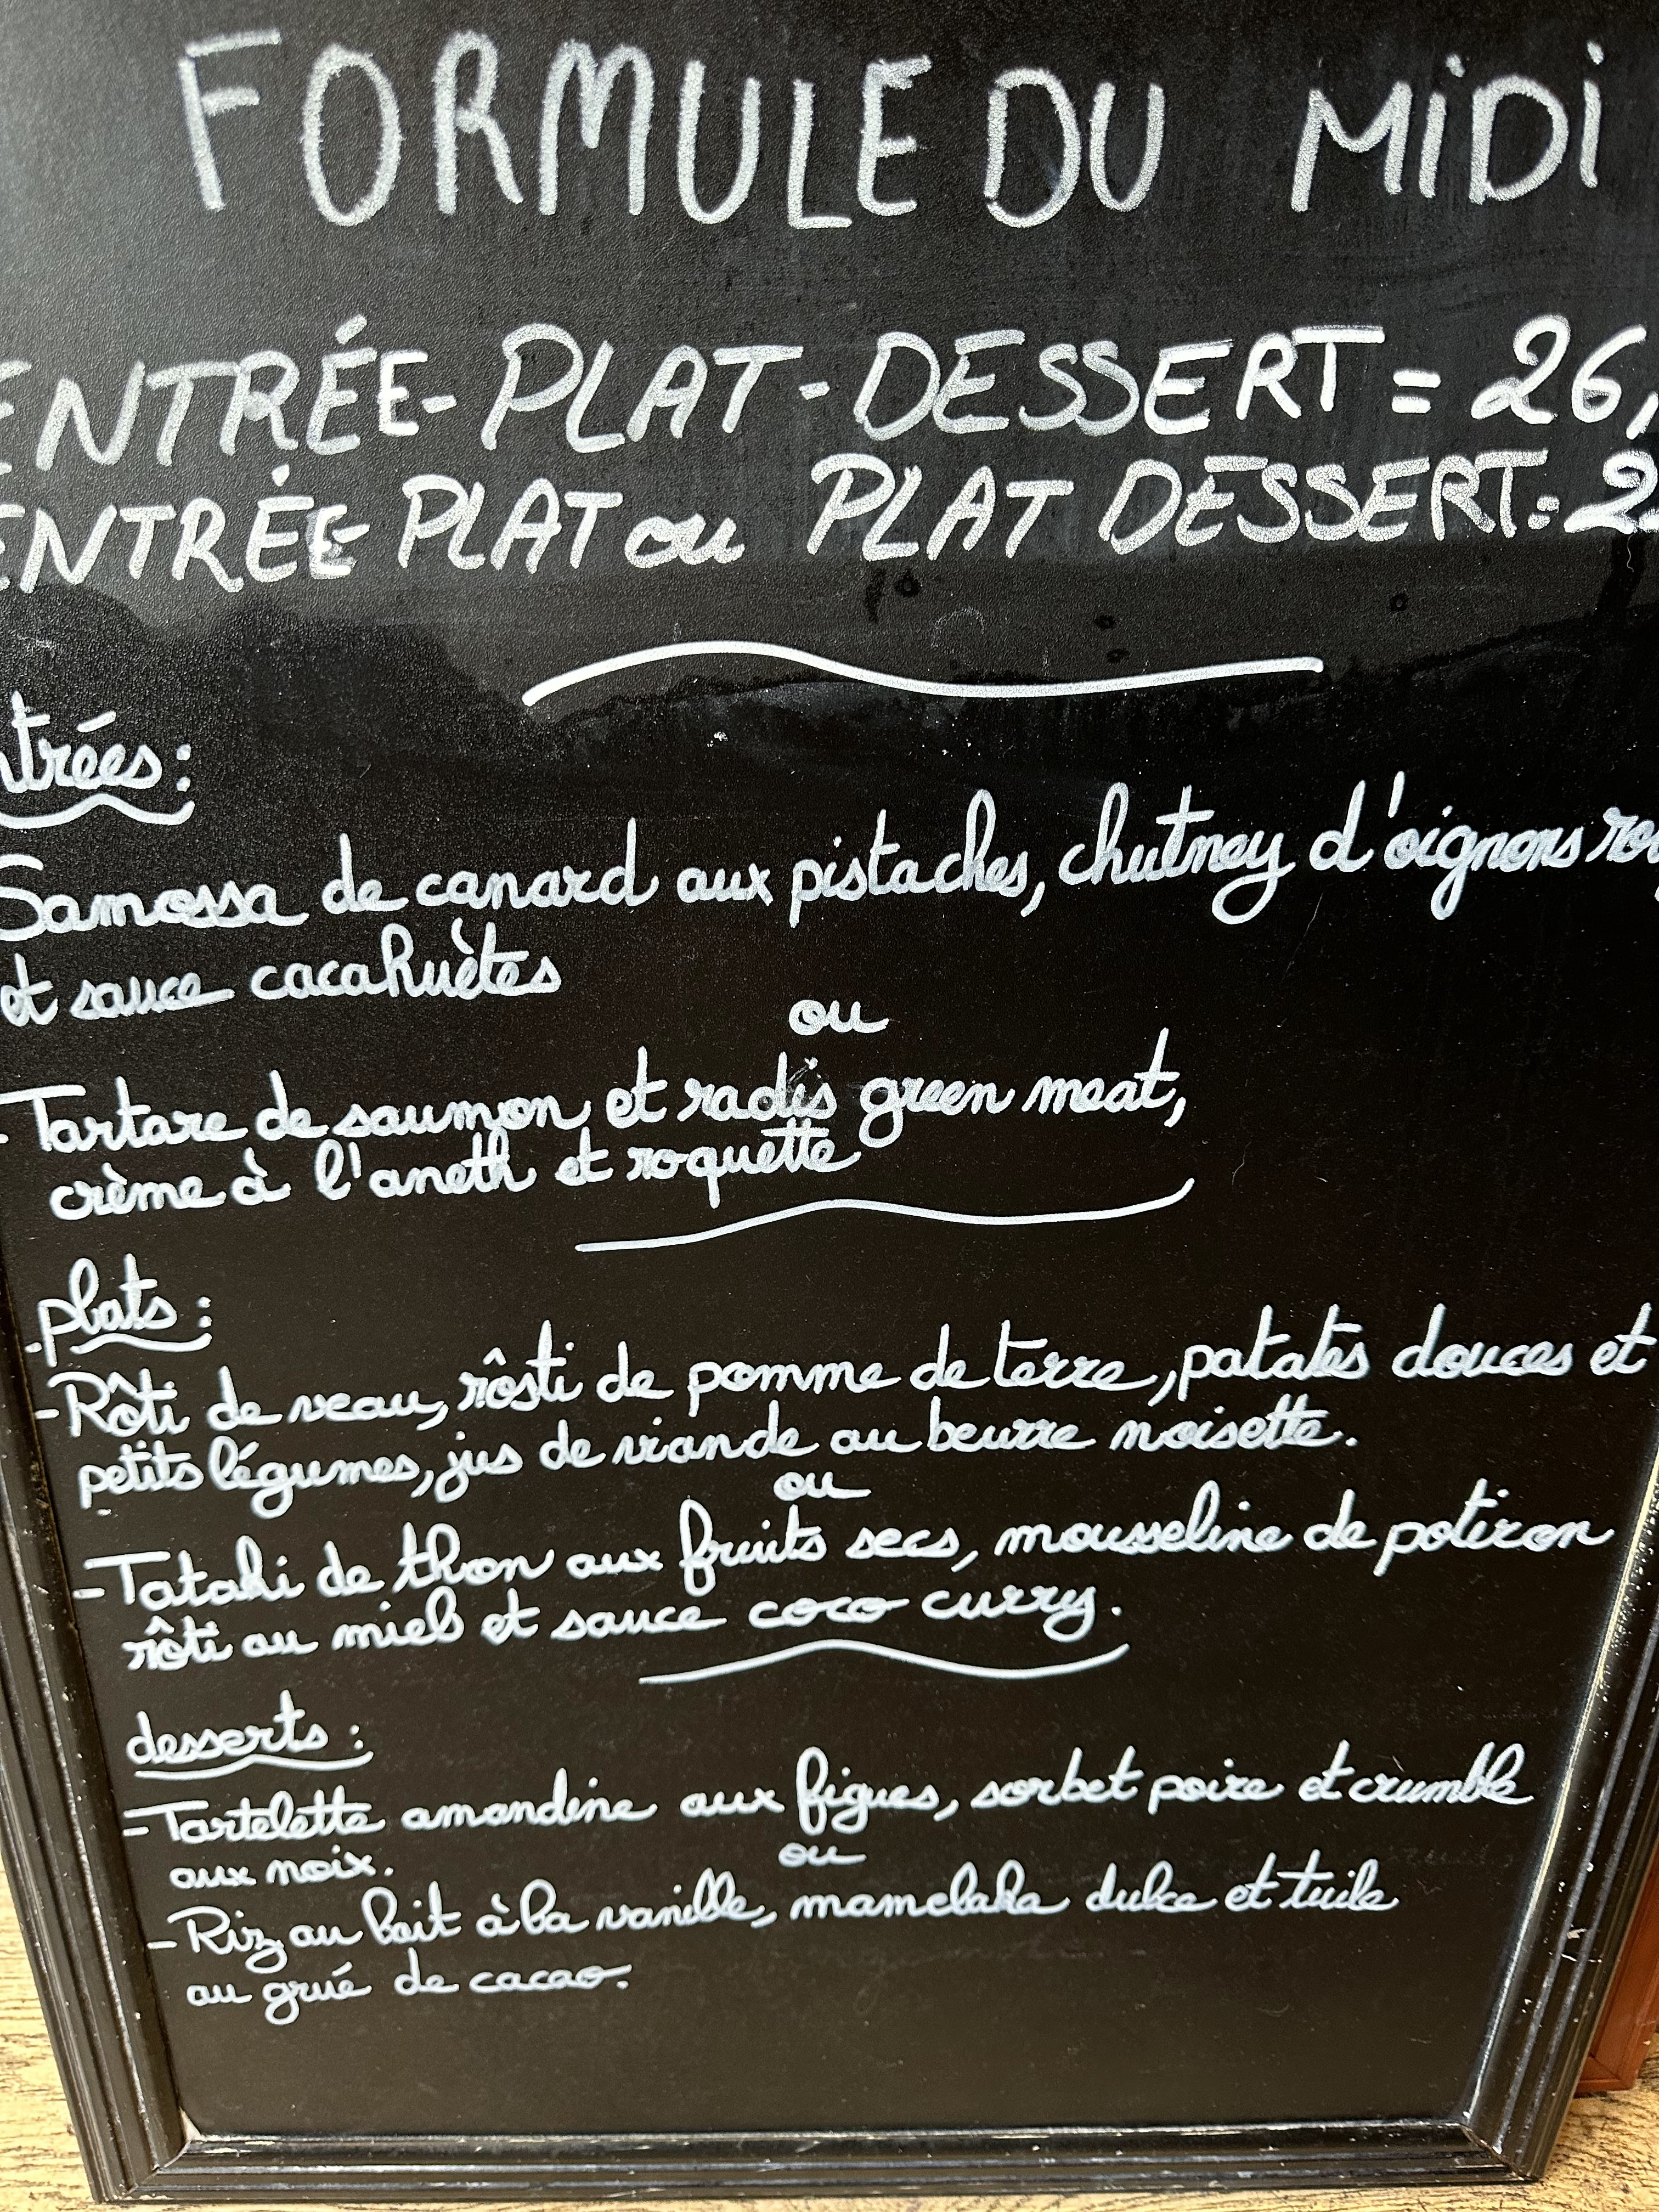 FORMULE DU MiDi
ENTRÉE-PLAT-DESSERT = 26,
ENTRÉE-PLAT ou PLAT DESSERT=
ntrées:
Samossa de canard aux pistaches, chutney d'oignons
et sauce cacahuètes
ou
-Tartare de saumon et radis green meat,
crème à l'aneth et roquette
plats:
-Rôti de veau, rôsti de pomme de terre, patates douces et
petits légumes, jus de viande au beurre noisette.
ou
-Tataki de thon aux fruits secs, mousseline de potiron
rôti au miel et sauce coco curry.
desserts:
-Tartelette amandine aux figues, sorbet poire et crumble
aux noix.
ou
-Riz au lait à la vanille, mamelaka dulce et tuile
au grué de cacao.